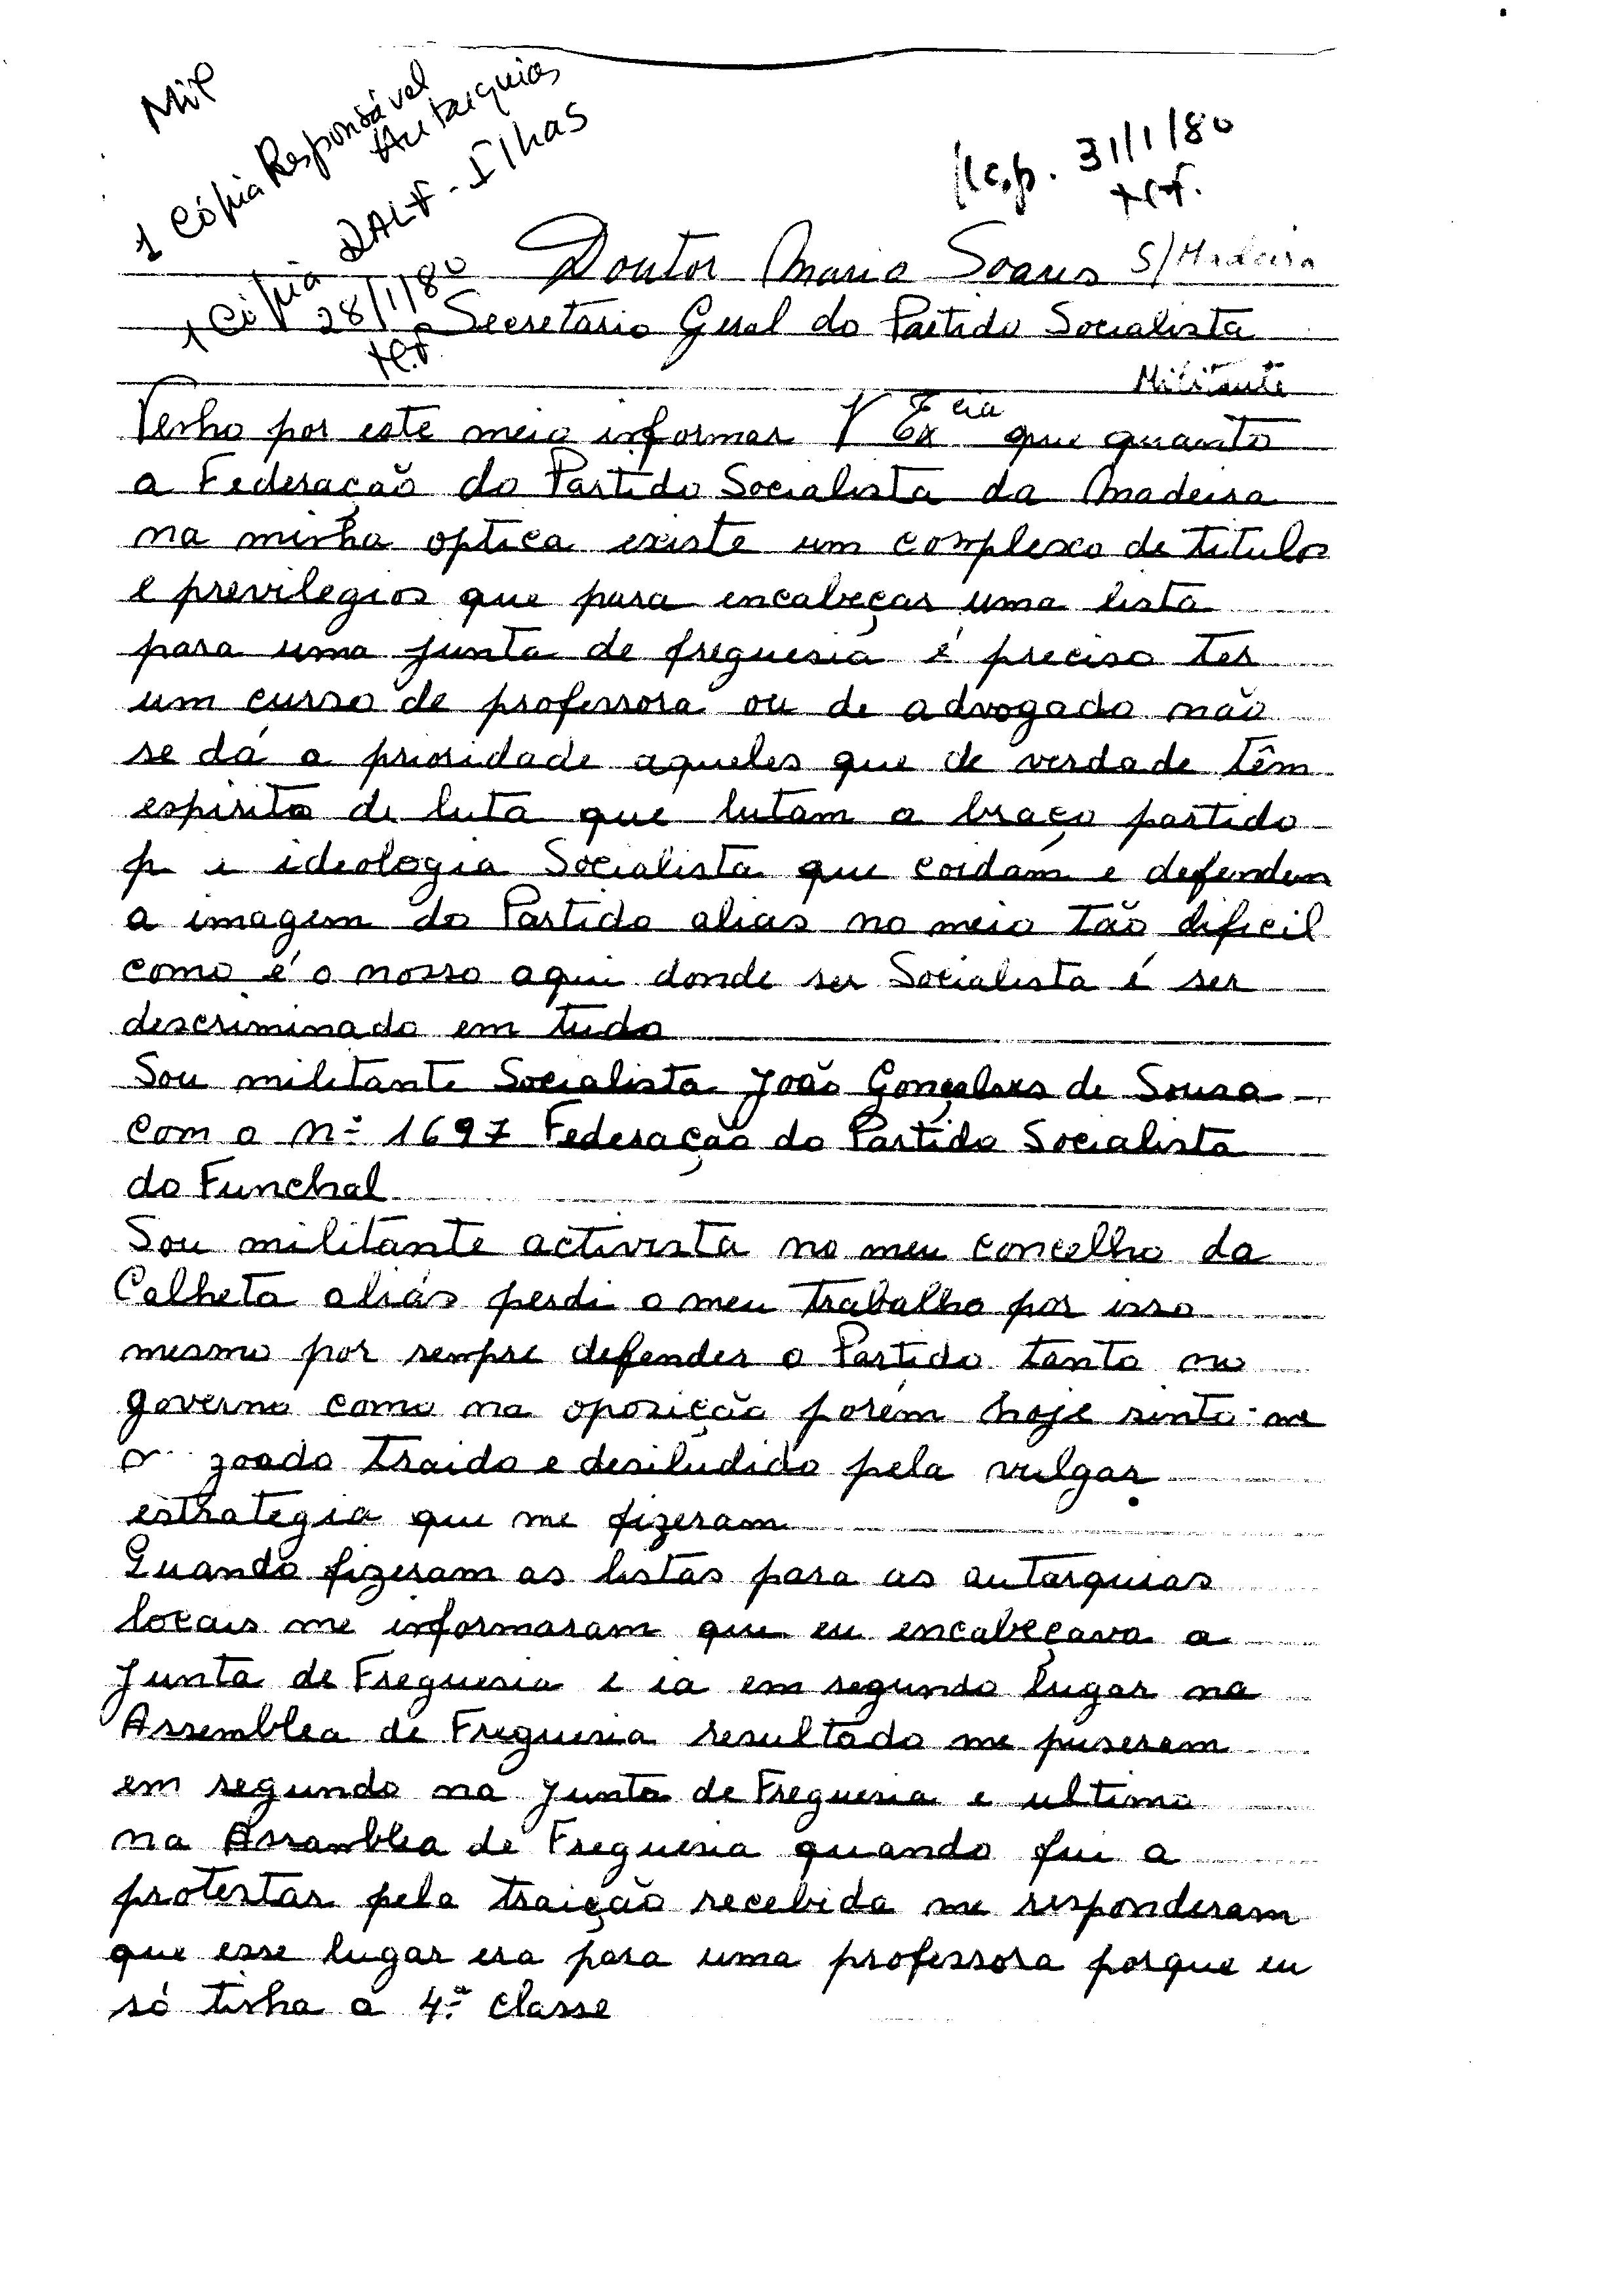 Mil
1 Cópia Responsável
Autarquias
1 Cópia DALF - Ilhas
28/1/80
Resp. 31/1/80
Doutor Mario Soares S/Madeira
Secretario Geral do Partido Socialista
Militante
Venho por este meio informar V Exª que quanto
a Federação do Partido Socialista da Madeira
na minha optica existe um complexo de titulos
e previlegios que para encabeçar uma lista
para uma junta de freguesia é preciso ter
um curso de professora ou de advogado não
se dá a prioridade aqueles que de verdade têm
espirito de luta que lutam a braço partido
p e ideologia Socialista que coidam e defendem
a imagem do Partido alias no meio tão dificil
como é o nosso aqui donde ser Socialista é ser
descriminado em tudo
Sou militante Socialista João Gonçalves de Sousa
com o nº 1697 Federação do Partido Socialista
do Funchal
Sou militante activista no meu concelho da
Calheta aliás perdi o meu trabalho por isso
mesmo por sempre defender o Partido tanto no
governo como na oposição porém hoje sinto-me
zoado traido e desiludido pela vulgar
estrategia que me fizeram
Quando fizeram as listas para as autarquias
locais me informaram que eu encabeçava a
Junta de Freguesia e ia em segundo lugar na
Assemblea de Freguesia resultado me puseram
em segundo na Junta de Freguesia e ultimo
na Assamblea de Freguesia quando fui a
protestar pela traição recebida me responderam
que esse lugar era para uma professora porque eu
só tinha a 4ª classe